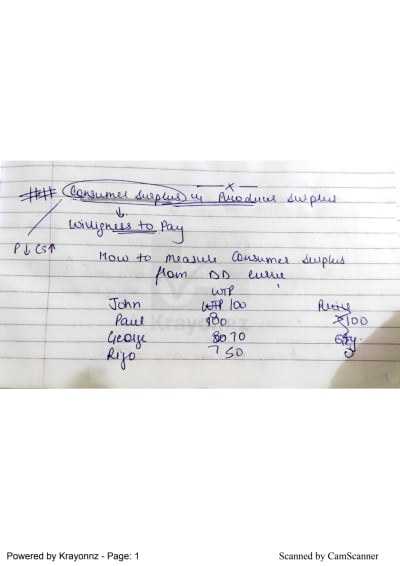 — x —
### Consumer Surplus is Producer Surplus
↓
Willigness to Pay
P↓ CS↑
How to measure Consumer Surplus
from DD curve
WTP
John 100
Paul 80 100
George 70
Rijo 50
Krayonnz
Powered by Krayonnz - Page: 1 Scanned by CamScanner